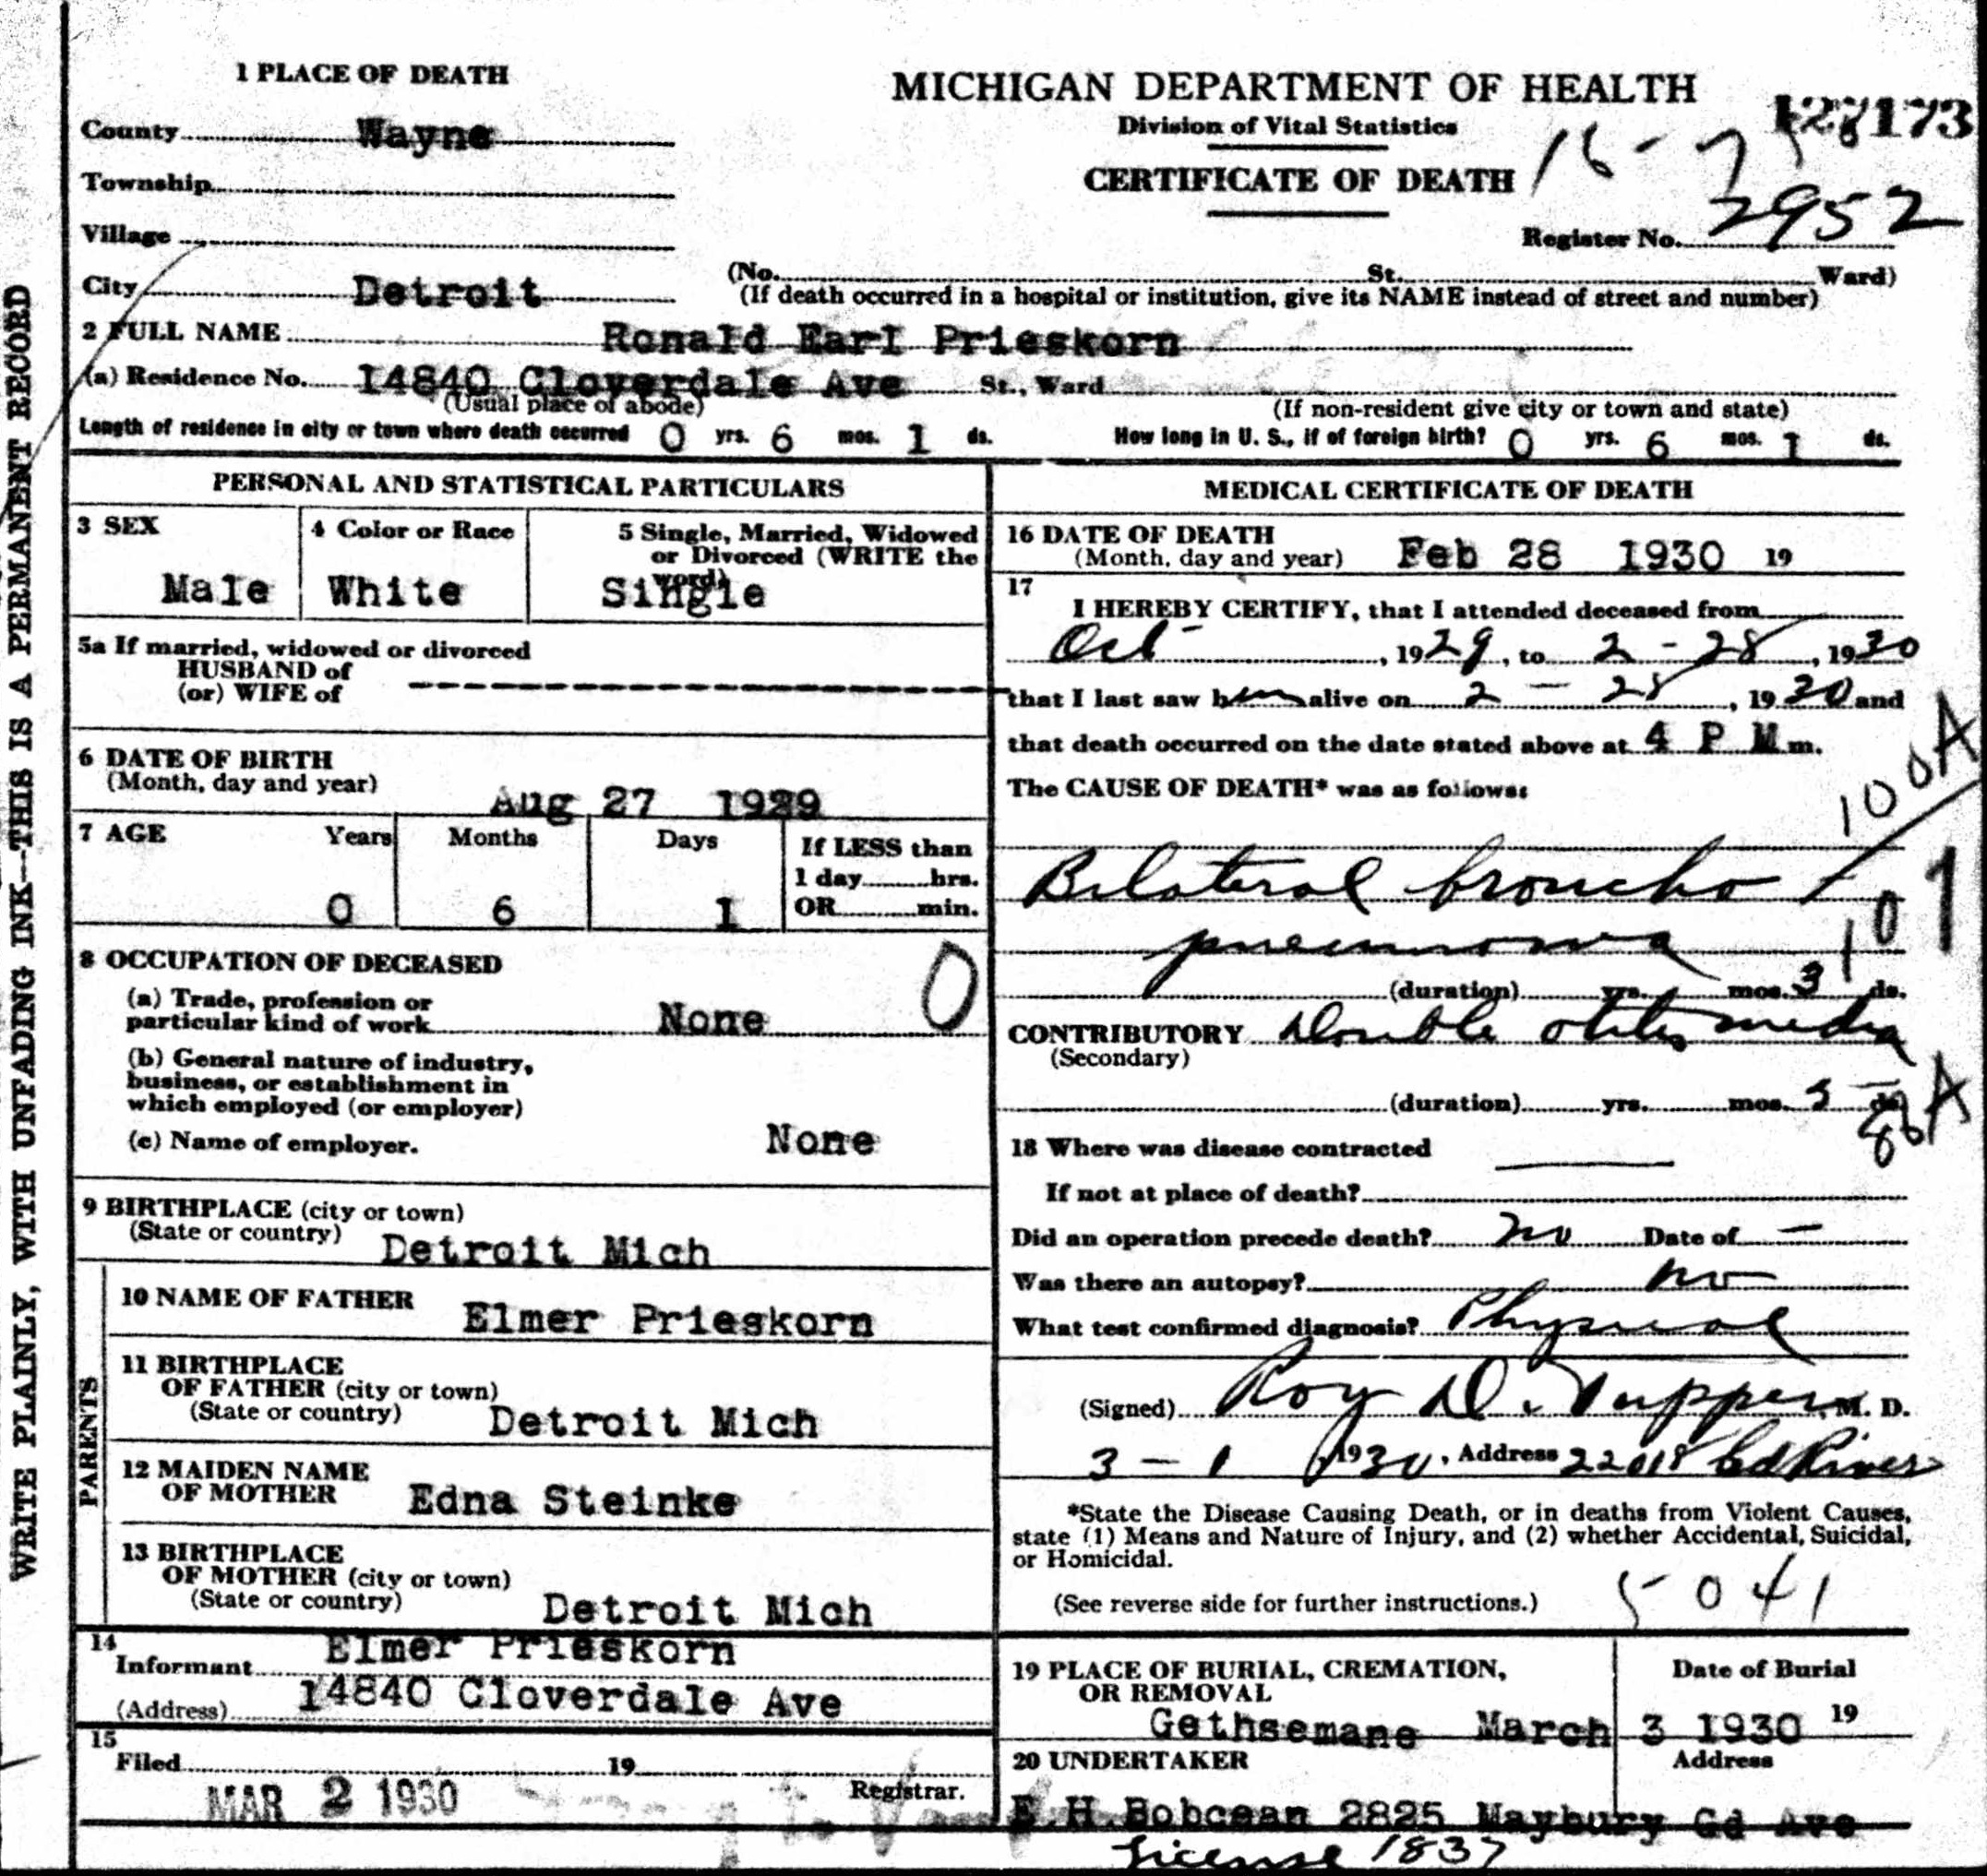 WRITE PLAINLY, WITH UNFADING INK—THIS IS A PERMANENT RECORD
1 PLACE OF DEATH
County Wayne
Township
Village
City Detroit
MICHIGAN DEPARTMENT OF HEALTH
Division of Vital Statistics
CERTIFICATE OF DEATH
Register No. 2952
(No. St. Ward)
(If death occurred in a hospital or institution, give its NAME instead of street and number)
2 FULL NAME Ronald Earl Prieskorn
(a) Residence No. 14840 Cloverdale Ave St., Ward
(Usual place of abode)
(If non-resident give city or town and state)
Length of residence in city or town where death occurred 0 yrs. 6 mos. 1 ds.
How long in U. S., if of foreign birth? 0 yrs. 6 mos. 1 ds.
PERSONAL AND STATISTICAL PARTICULARS
3 SEX
Male
4 Color or Race
White
5 Single, Married, Widowed
or Divorced (WRITE the
word)
Single
5a If married, widowed or divorced
HUSBAND of
(or) WIFE of
6 DATE OF BIRTH
(Month, day and year)
Aug 27 1929
7 AGE Years Months Days
0 6 1
If LESS than
1 day hrs.
OR min.
8 OCCUPATION OF DECEASED
0
(a) Trade, profession or
particular kind of work None
(b) General nature of industry,
business, or establishment in
which employed (or employer)
(c) Name of employer. None
9 BIRTHPLACE (city or town)
(State or country) Detroit Mich
PARENTS
10 NAME OF FATHER Elmer Prieskorn
11 BIRTHPLACE
OF FATHER (city or town)
(State or country) Detroit Mich
12 MAIDEN NAME
OF MOTHER Edna Steinke
13 BIRTHPLACE
OF MOTHER (city or town)
(State or country) Detroit Mich
14
Informant Elmer Prieskorn
(Address) 14840 Cloverdale Ave
15
Filed 19
MAR 2 1930
Registrar.
MEDICAL CERTIFICATE OF DEATH
16 DATE OF DEATH
(Month, day and year) Feb 28 1930 19
17
I HEREBY CERTIFY, that I attended deceased from
Oct - , 1929, to 2 - 28, 1930
that I last saw him alive on 2 - 28, 1930 and
that death occurred on the date stated above at 4 P M m.
The CAUSE OF DEATH* was as follows:
100A
Bilateral broncho
101
pneumonia
(duration) yrs. mos. 3 ds.
CONTRIBUTORY Double otitis media
(Secondary)
(duration) yrs. mos. 5 ds.
86A
18 Where was disease contracted
If not at place of death?
Did an operation precede death? no Date of -
Was there an autopsy? no
What test confirmed diagnosis? Physical
(Signed) Roy D. Tupper, M. D.
3 - 1 1930, Address 22018 Gd River
*State the Disease Causing Death, or in deaths from Violent Causes,
state (1) Means and Nature of Injury, and (2) whether Accidental, Suicidal,
or Homicidal.
(See reverse side for further instructions.)
5041
19 PLACE OF BURIAL, CREMATION,
OR REMOVAL
Date of Burial
Gethsemane March 3 1930 19
20 UNDERTAKER Address
E.H.Bobcean 2825 Maybury Gd Ave
License 1837